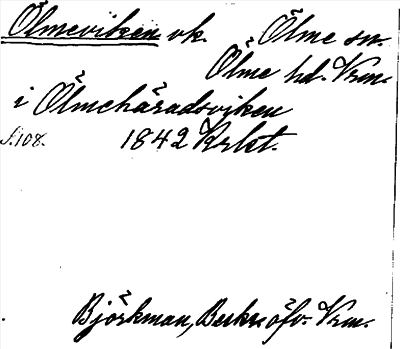 Ölmeviken vk. Ölme sn.
Ölme hd. Vrm.
i Ölmehäradsviken
s. 108. 1842 Krkt.
Björkman, Beskr. öfv. Vrm.